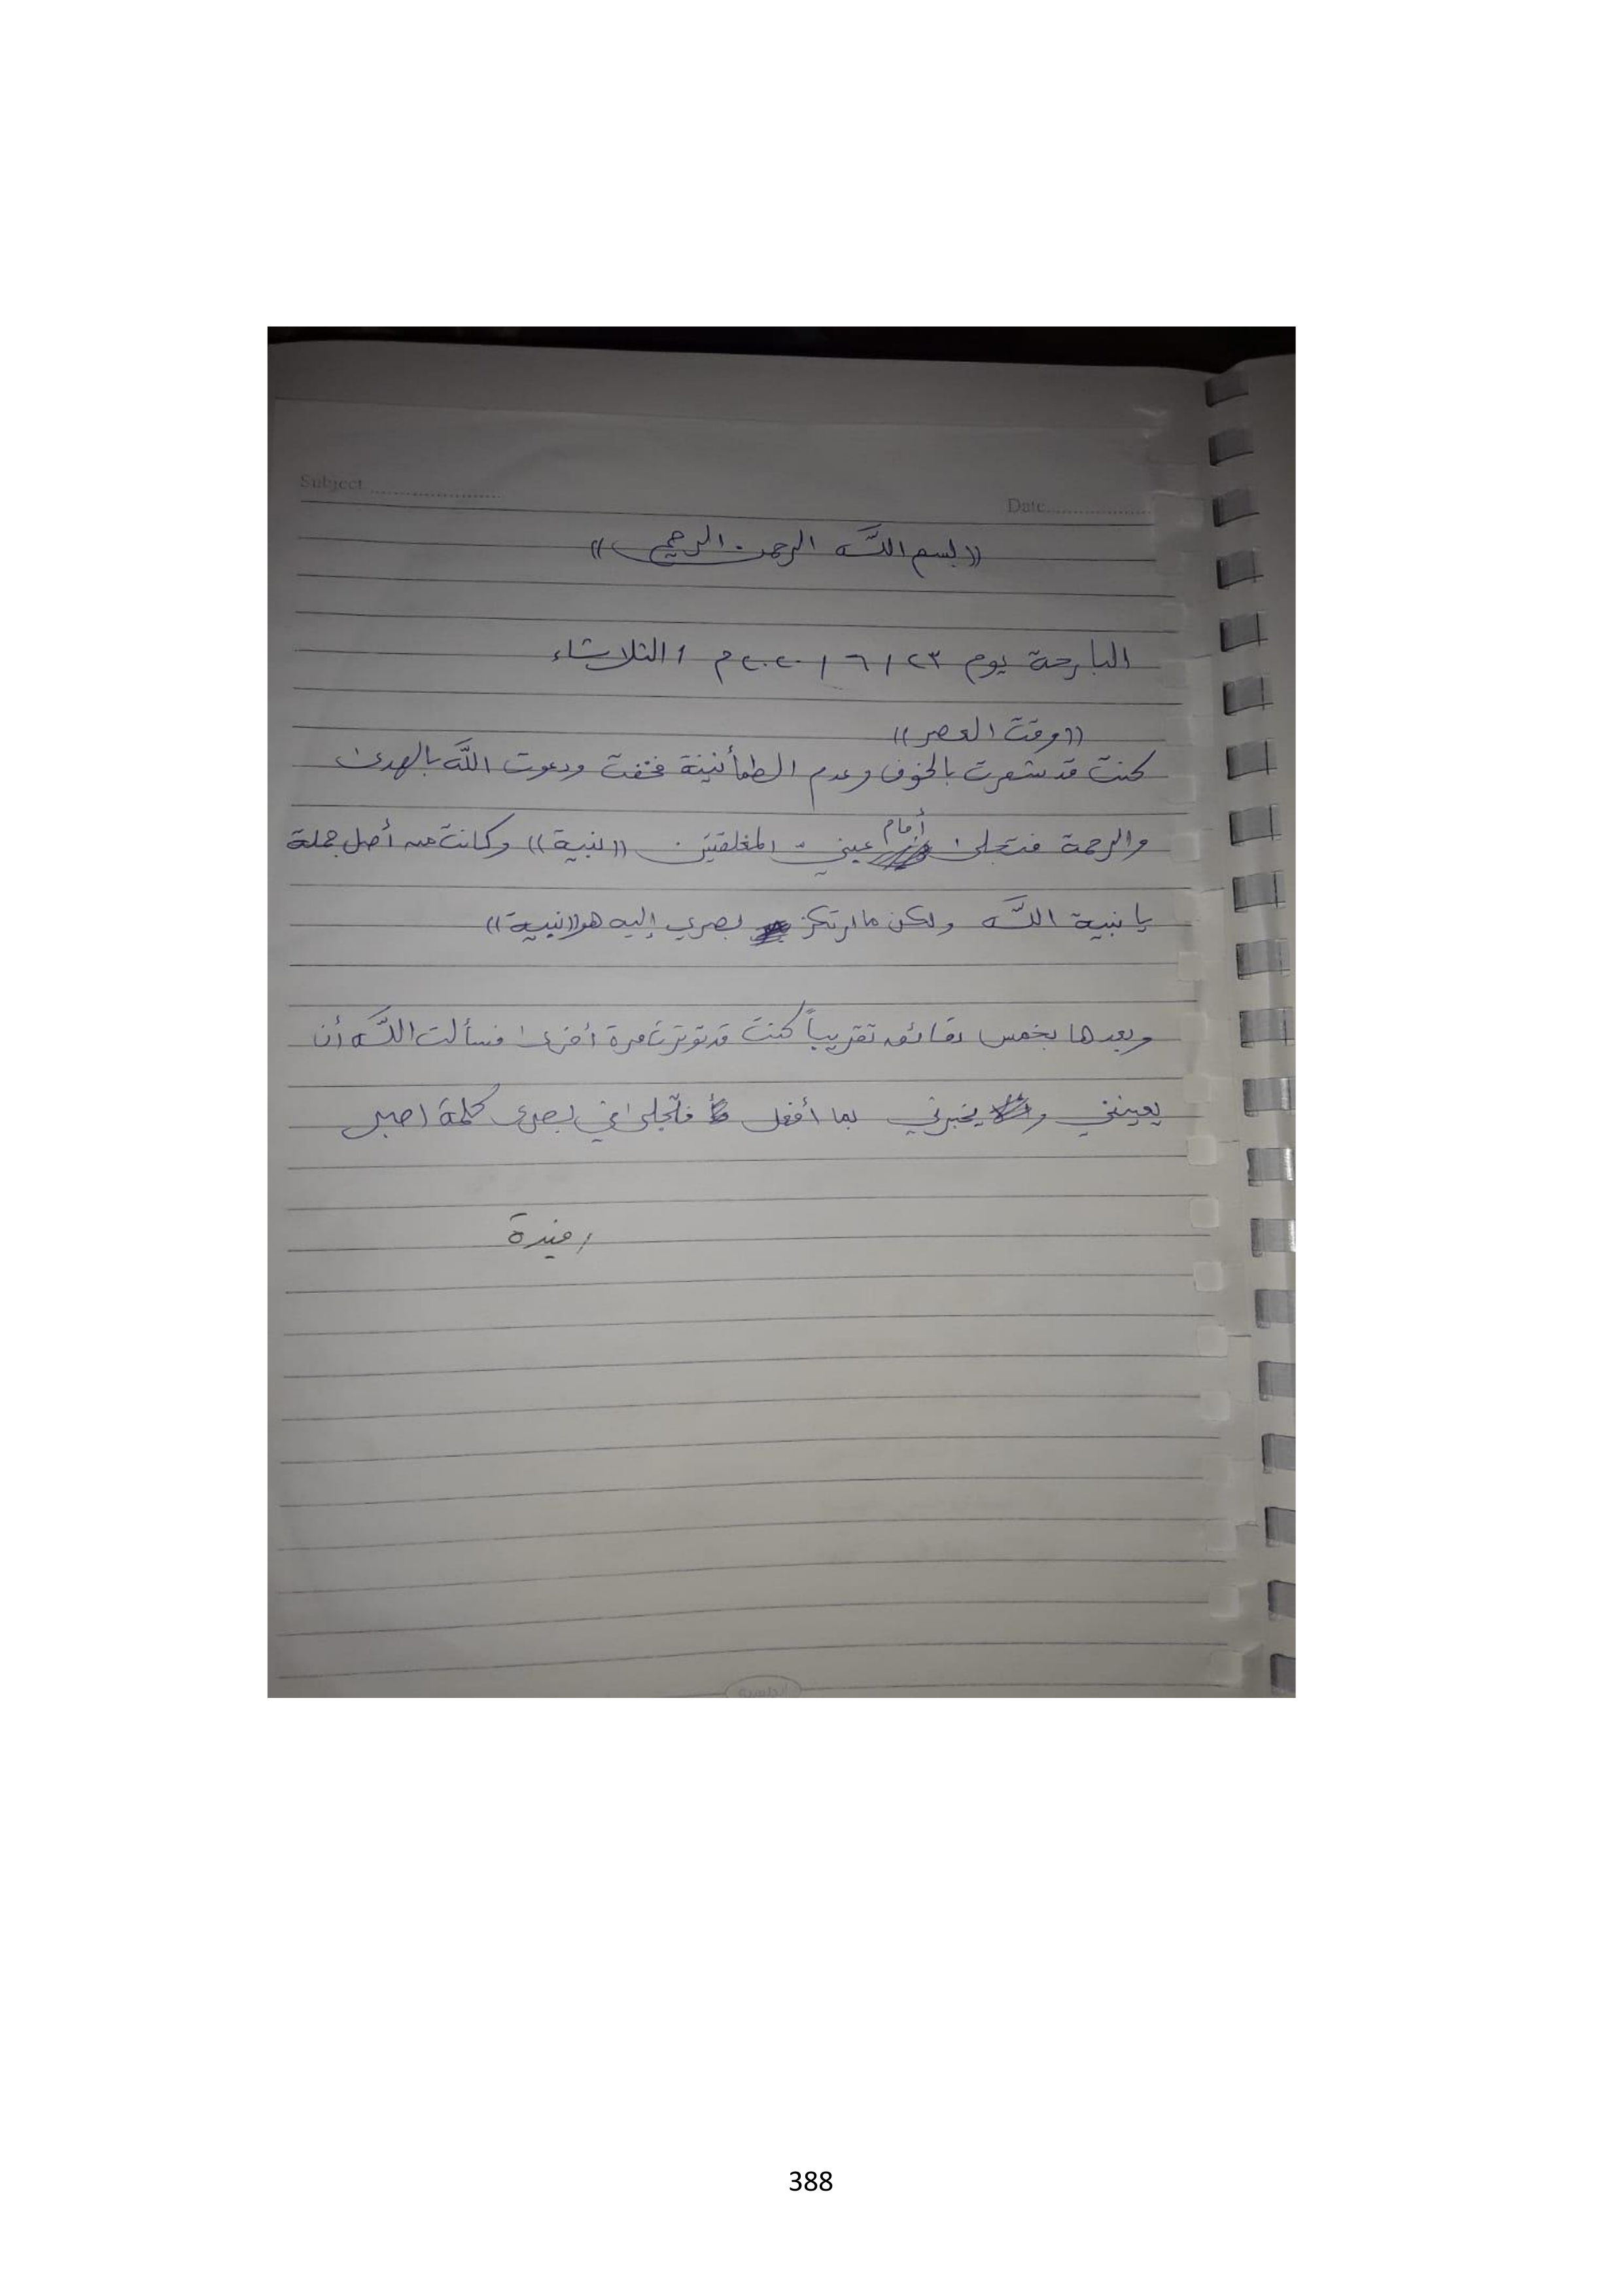 Subject....................
Date....................
((بسم الله الرحمن الرحيم))
البارحة يوم ٢٣ / ٦ / ٢٠٢٠ م / الثلاثاء
((وقت العصر))
كنت قد شعرت بالخوف وعدم الطمأنينة فخفت ودعوت الله بالهدى
والرحمة فتجلى أمام عينيّ المغلقتين ((نبية)) وكانت من أصل جملة
يا نبية الله ولكن ما ارتكز بصري إليه هو ((نبية))
وبعدها بخمس دقائق تقريباً كنت قد توترت مرة أخرى فسألت الله أن
يعينني و يخبرني بما أفعل فتجلى في بصري كلمة اصبر
388